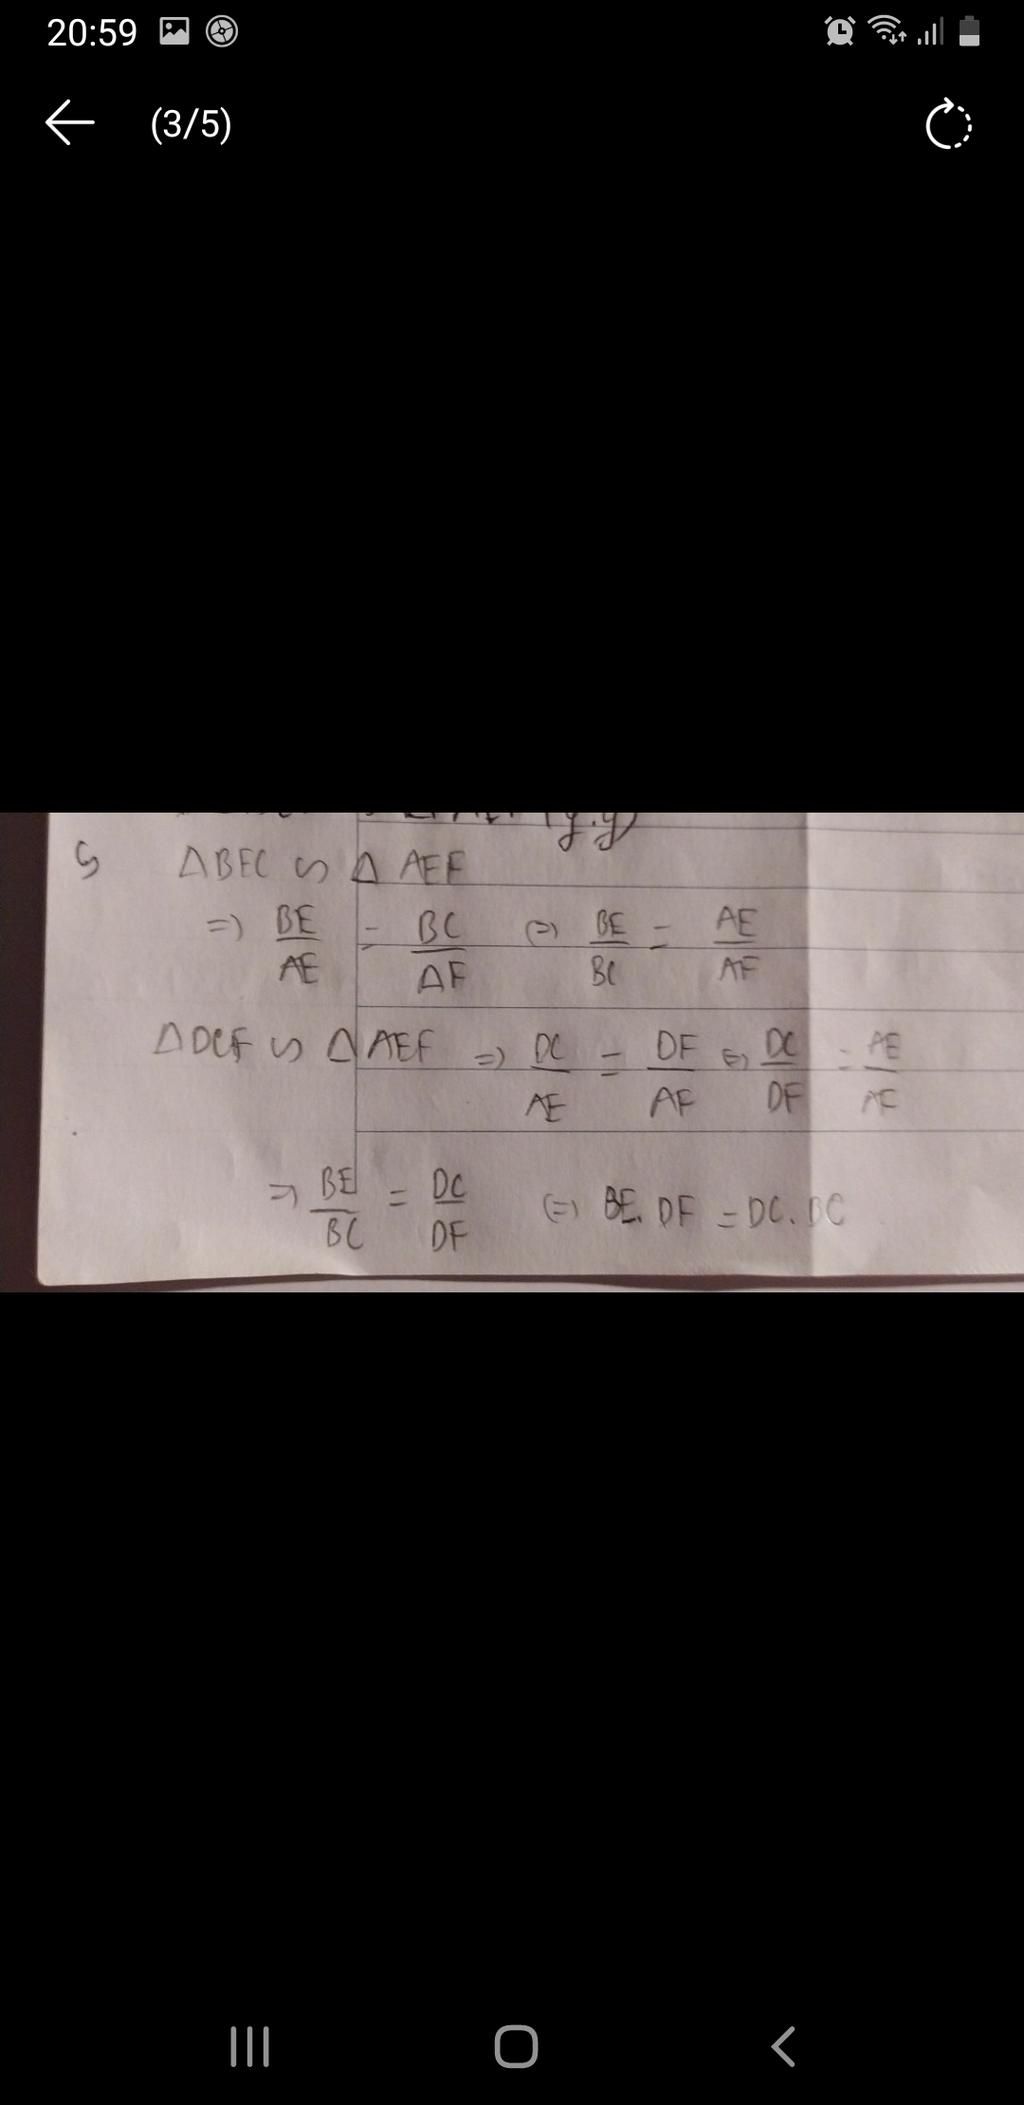 20:59
(3/5)
(g.g)
ΔBEC ∽ Δ AEF
=> BE/AE = BC/AF (=) BE/BC = AE/AF
ΔDCF ∽ ΔAEF => DC/AE = DF/AF (=) DC/DF = AE/AF
=> BE/BC = DC/DF (=) BE. DF = DC. BC